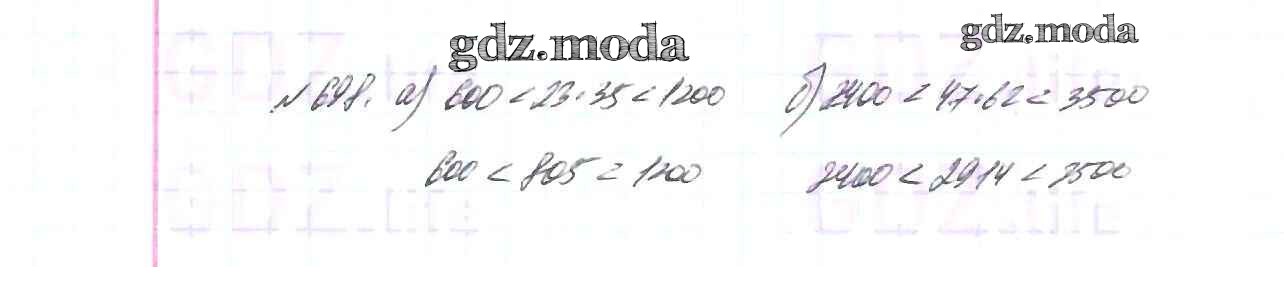 gdz.moda gdz.moda
№ 698. а) 600 < 23·35 < 1200 б) 2400 < 47·62 < 3500
600 < 805 < 1200 2400 < 2914 < 3500